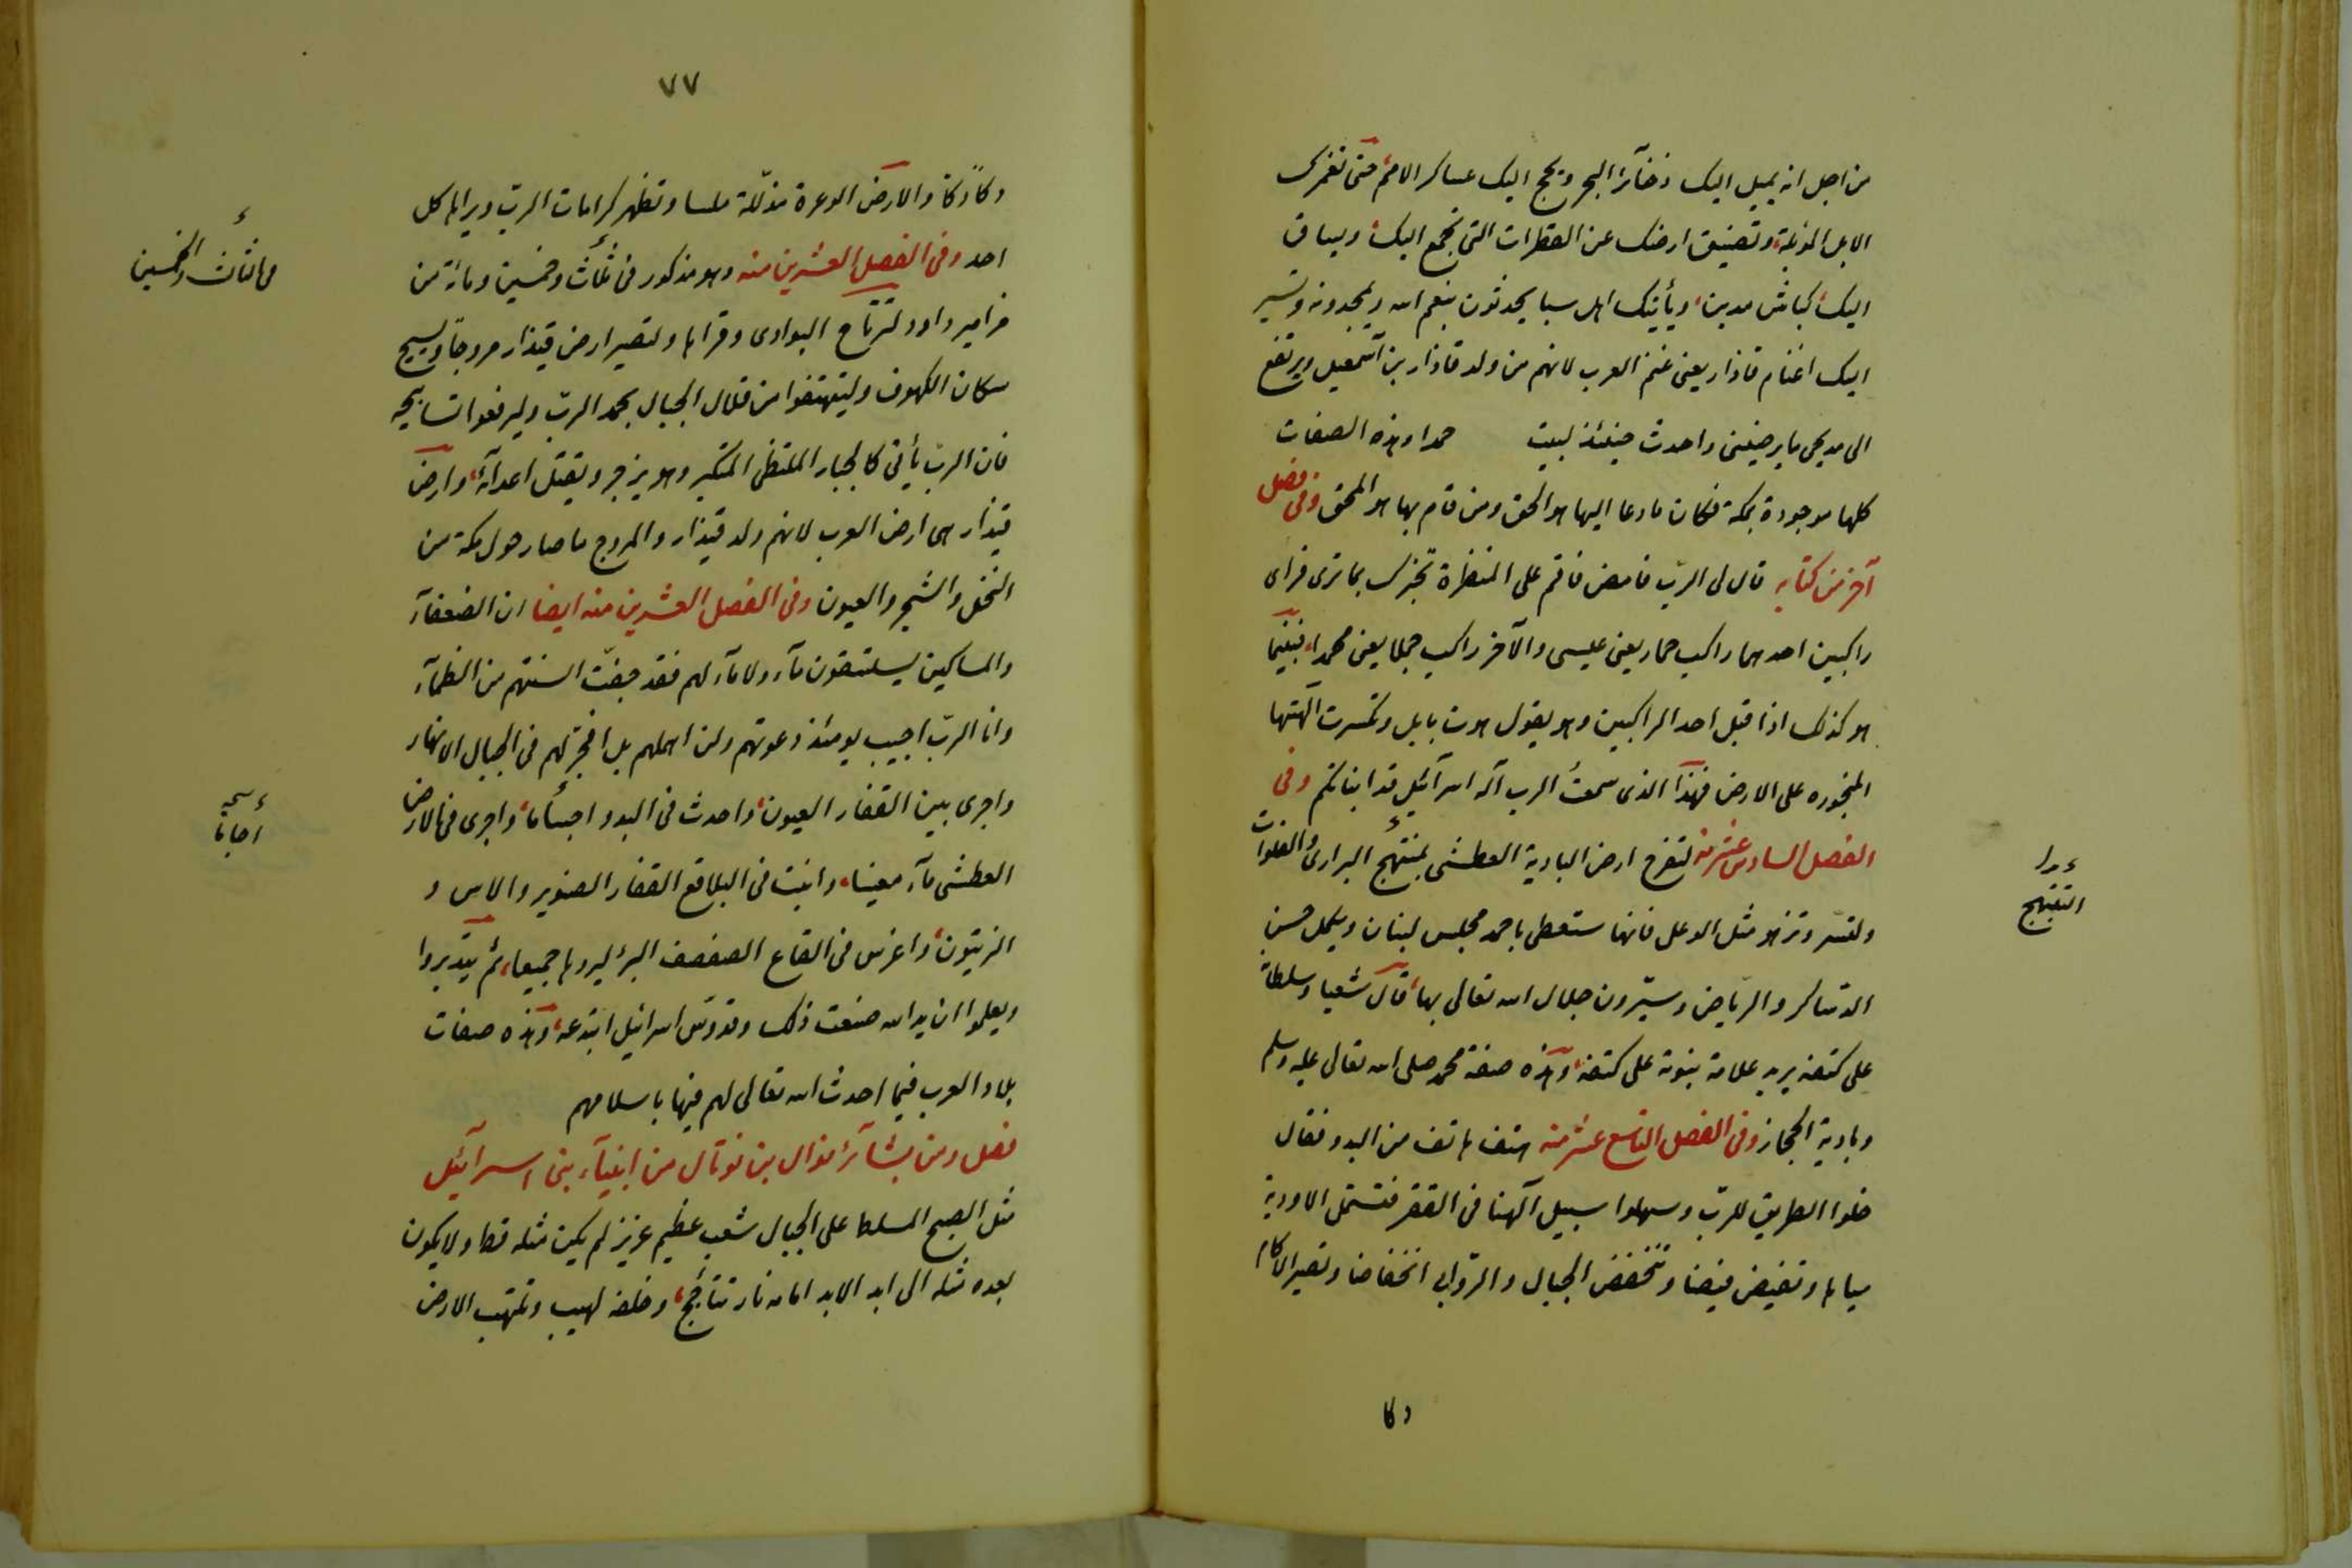 من اجل انه يميل اليك ذخآئر البحر ويحج اليك عساكر الامم حتى تغمرك
الابل المؤبلة وتضيق ارضك عن القطرات التى تجمع اليك ويساق
اليك كباش مدين ويأتيك اهل سبا يحدثون بنعم الله ويمجدونه وتسير
اليك اغنام قاذار يعنى غنم العرب لانهم من ولد قاذار بن اسمعيل ويرتفع
الى مدبحى ما يرضينى واحدث حينئذ لبيت حمدا وهذه الصفات
كلها موجودة بمكة فكان ما دعا اليها هو الحق ومن قام بها هو المحق وفى فصل
آخر من كتابه قال لى الرب فامض فاقم على المنظرة تخبرك بما ترى فراى
راكبين احدهما راكب حمار يعنى عيسى والآخر راكب جملا يعنى محمدا فبينما
هو كذلك اذا قبل احد الراكبين وهو يقول هوت بابل وتكسرت آلهتها
المنجوره على الارض فهذا الذى سمعت الرب اله اسرآئيل قد انبأتكم وفى
الفصل السادس عشر منه لتفرح ارض البادية العطشى لتبتهج البرارى والفلوات
ولتسر وتزهو مثل الوعل فانها ستعطى باحمد مجلس لبنان وبكمل حسن
الدساكر والرياض وسترون جلال الله تعالى بها قال شعيا وسلطانه
على كتفه يريد علامة نبوته على كتفه وهذه صفة محمد صلى الله تعالى عليه وسلم
وبادية الحجاز وفى الفصل التاسع عشر منه هتف هاتف من البدو فقال
خلوا الطريق للرب وسهلوا سبيل آلهنا فى القفر فتستملى الاودية
مياها وتفيض فيضا وتنخفض الجبال والروابى انخفاضا وتصير الاكام
دكا
التبتهج
٧٧
دكادكا والارض الوعرة مذللة ملسا وتظهر كرامات الرب ويراها كل
احد وفى الفصل العشرين منه وهو مذكور فى ثلث وخمسين ومائة من
مزامير داود لترتاح البوادى وقراها ولتصير ارض قيذار مروجا ويسبح
سكان الكهوف وليتهتفوا من قلال الجبال بحمد الرب وليرفعوا تسابيحه
فان الرب يأتى كالجبار الملتظى المتكبر وهو يزجر ويقتل اعدآئه وارض
قيذار هى ارض العرب لانهم ولد قيذار والمروج ما صار حول مكة من
النخل والشجر والعيون وفى الفصل العشرين منه ايضا ان الضعفآء
والمساكين يستسقون مآء ولا مآء لهم فقد جفت السنتهم من الظمآء
وانا الرب اجيب يومئذ دعوتهم ولن اهملهم بل افجر لهم فى الجبال الانهار
واجرى بين القفار العيون واحدث فى البدو اجساما واجرى فى الارض
العطشى مآء معينا وانبت فى البلاقع القفار الصنوبر والاس و
الزيتون واغرس فى القاع الصفصف البر ليروها جميعا ثم يتدبروا
ويعلموا ان يد الله صنعت ذلك وقدوس اسرائيل ابتدعه وهذه صفات
بلاد العرب فيما احدث الله تعالى لهم فيها باسلامهم
فصل ومن بشآئر نوال بن نوتال من انبيآء بنى اسرآئيل
مثل الصبح المسلط على الجبال شعب عظيم عزيز لم يكن مثله قط ولا يكون
بعده مثله الى ابد الابد امامه نار تتأجج وخلفه لهيب وتلتهب الارض
فى الثالث والخمسين